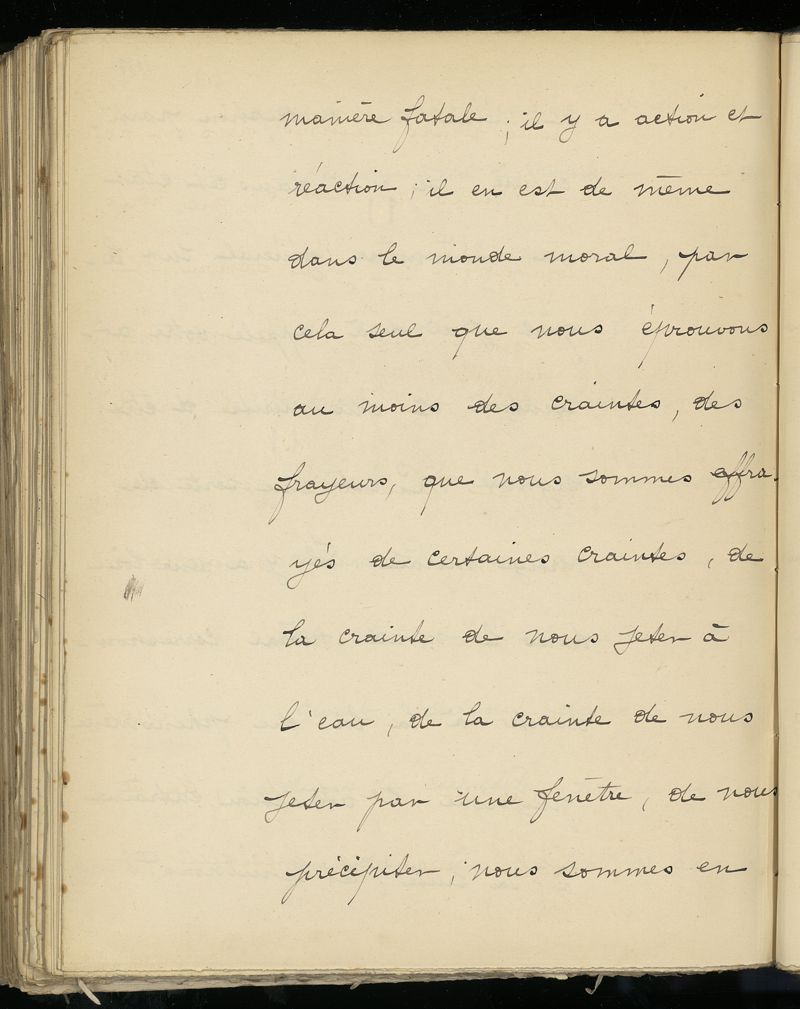 manière fatale ; il y a action et
réaction ; il en est de même
dans le monde moral, par
cela seul que nous éprouvons
au moins des craintes, des
frayeurs, que nous sommes effra-
yés de certaines craintes, de
la crainte de nous jeter à
l'eau, de la crainte de nous
jeter par une fenêtre, de nous
précipiter ; nous sommes en